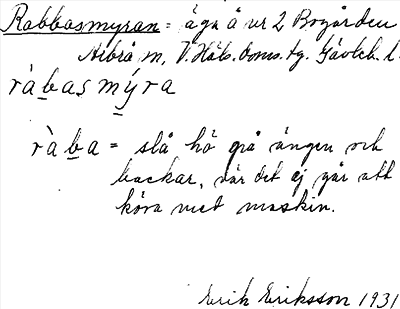 Rabbasmyran = äga å nr 2 Bogården
Arbrå sn, V. Häls. doms. tg. Gävleb. l.
ràbasmýra
ràba = slå hö på ängen och
backar, när det ej går att
köra med maskin.
Erik Eriksson 1931